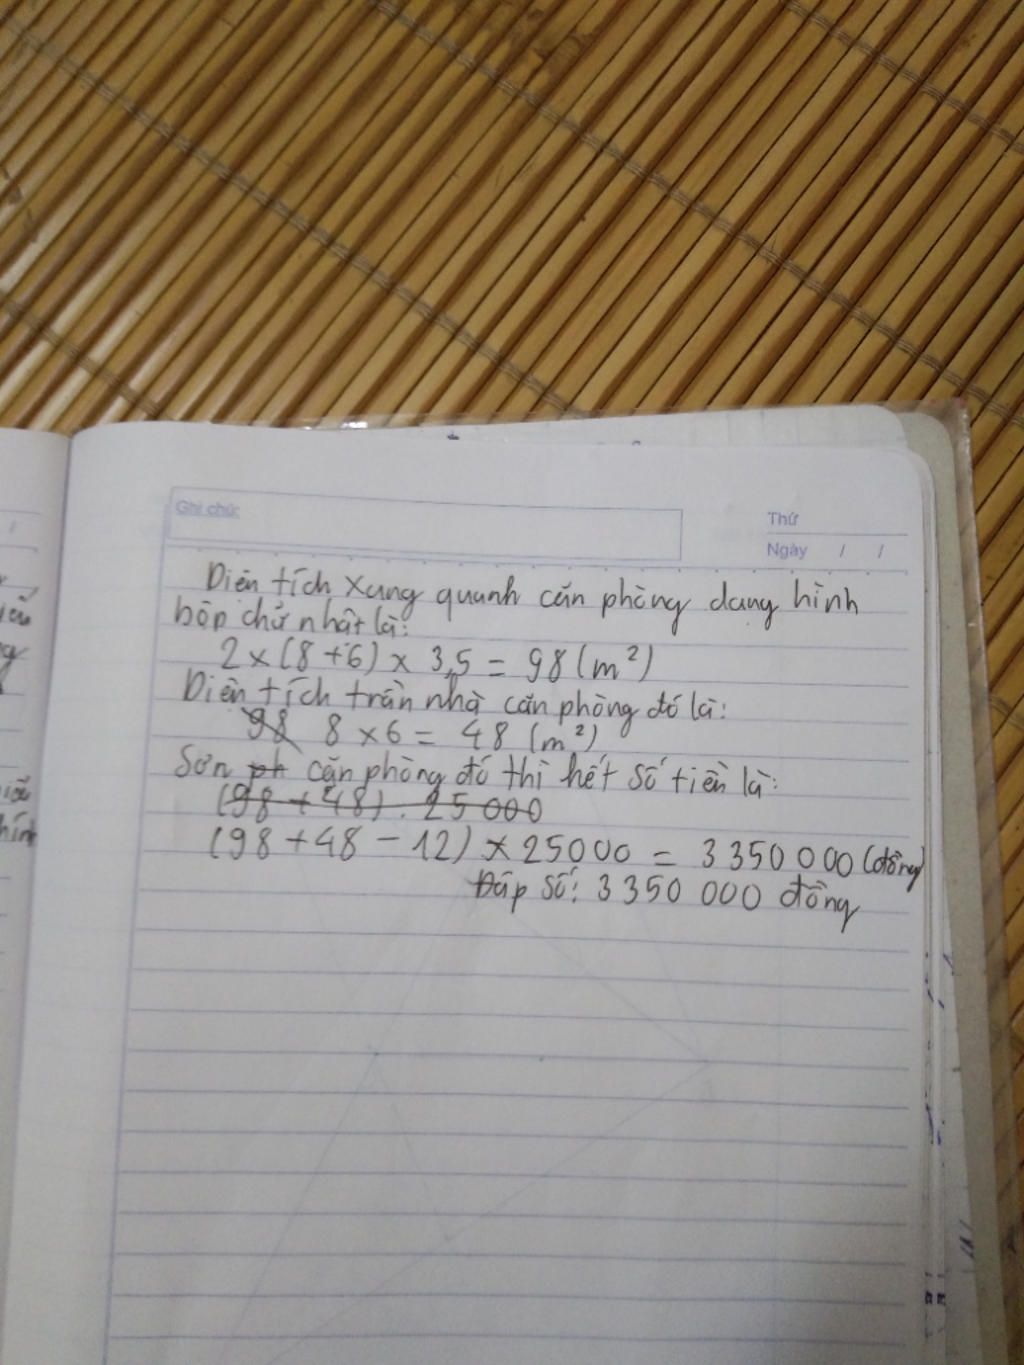 Ghi chú:
Thứ
Ngày / /
Diện tích xung quanh căn phòng dạng hình
hộp chữ nhật là:
2 × (8 + 6) × 3,5 = 98 (m²)
Diện tích trần nhà căn phòng đó là:
98 8 × 6 = 48 (m²)
Sơn ph căn phòng đó thì hết số tiền là:
(98 + 48) . 25 000
(98 + 48 - 12) × 25000 = 3350 000 (đồng)
Đáp số: 3350 000 đồng